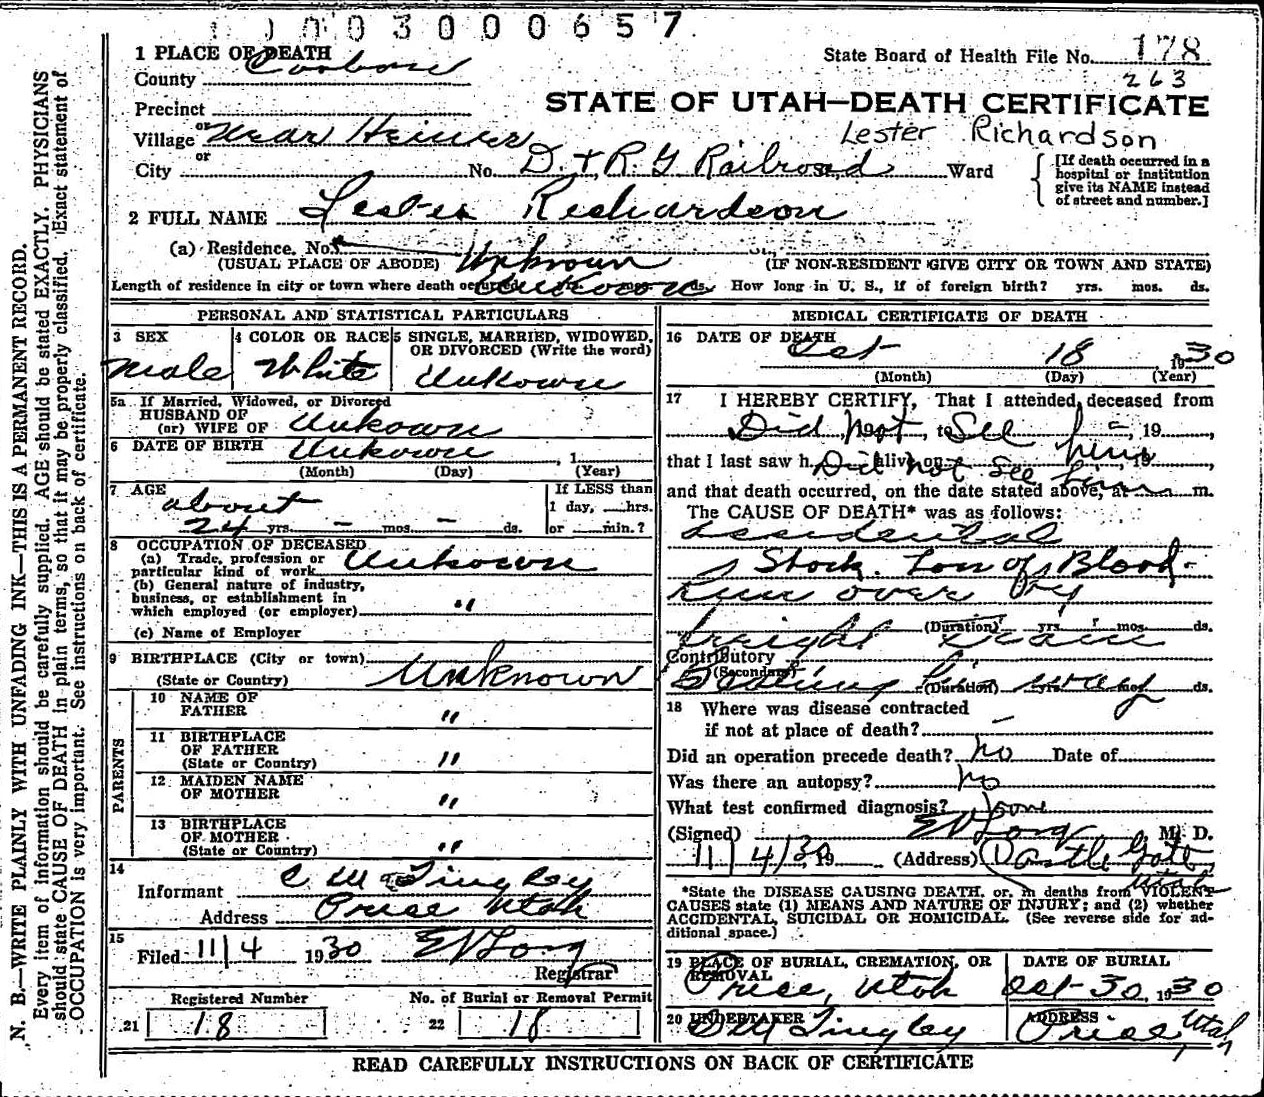 N. B.—WRITE PLAINLY WITH UNFADING INK—THIS IS A PERMANENT RECORD.
Every item of information should be carefully supplied. AGE should be stated EXACTLY. PHYSICIANS
should state CAUSE OF DEATH in plain terms, so that it may be properly classified. Exact statement of
OCCUPATION is very important. See instructions on back of certificate.
03000657
1 PLACE OF DEATH
State Board of Health File No. 178
263
County Carbon
Precinct
STATE OF UTAH—DEATH CERTIFICATE
Village or near Heiner
Lester Richardson
or
City No. D. + R. G Railroad Ward
[If death occurred in a
hospital or institution
give its NAME instead
of street and number.]
2 FULL NAME Lester Richardson
(a) Residence. No. Unknown St.,
(USUAL PLACE OF ABODE) (IF NON-RESIDENT GIVE CITY OR TOWN AND STATE)
Length of residence in city or town where death occurred ds. How long in U. S., if of foreign birth? yrs. mos. ds.
PERSONAL AND STATISTICAL PARTICULARS
3 SEX
Male
4 COLOR OR RACE
White
5 SINGLE, MARRIED, WIDOWED,
OR DIVORCED (Write the word)
Unkown
5a If Married, Widowed, or Divorced
HUSBAND OF
(or) WIFE OF Unkown
6 DATE OF BIRTH Unkown , 1
(Month) (Day) (Year)
7 AGE
about
24 yrs. – mos. – ds.
If LESS than
1 day, hrs.
or min.?
8 OCCUPATION OF DECEASED
(a) Trade, profession or
particular kind of work Unkown
(b) General nature of industry,
business, or establishment in
which employed (or employer) "
(c) Name of Employer
9 BIRTHPLACE (City or town)
(State or Country) Unknown
PARENTS
10 NAME OF
FATHER "
11 BIRTHPLACE
OF FATHER
(State or Country) "
12 MAIDEN NAME
OF MOTHER "
13 BIRTHPLACE
OF MOTHER
(State or Country) "
14
Informant C M Tingley
Address Price Utah
15
Filed 11/4 1930 E V Long
Registrar
Registered Number
21 18
No. of Burial or Removal Permit
22 18
MEDICAL CERTIFICATE OF DEATH
16 DATE OF DEATH
Oct 18 1930
(Month) (Day) (Year)
17 I HEREBY CERTIFY, That I attended deceased from
Did Not, to See him, 19
that I last saw h alive on Did not See him, 19
and that death occurred, on the date stated above, at m.
The CAUSE OF DEATH* was as follows:
Accidental
Shock. Loss of Blood.
Run over by
(Duration) yrs. mos. ds.
freight train
Contributory
(Secondary)
Beating his way
(Duration) yrs. mos. ds.
18 Where was disease contracted
if not at place of death? –
Did an operation precede death? no Date of
Was there an autopsy? no
What test confirmed diagnosis? None
(Signed) E V Long M. D.
11/4/30 19 (Address) Castle Gate
Utah
*State the DISEASE CAUSING DEATH, or, in deaths from VIOLENT
CAUSES state (1) MEANS AND NATURE OF INJURY; and (2) whether
ACCIDENTAL, SUICIDAL OR HOMICIDAL. (See reverse side for ad-
ditional space.)
19 PLACE OF BURIAL, CREMATION, OR
REMOVAL
Price, Utah
DATE OF BURIAL
Oct 30, 1930
20 UNDERTAKER
C M Tingley
ADDRESS
Price, Utah
READ CAREFULLY INSTRUCTIONS ON BACK OF CERTIFICATE